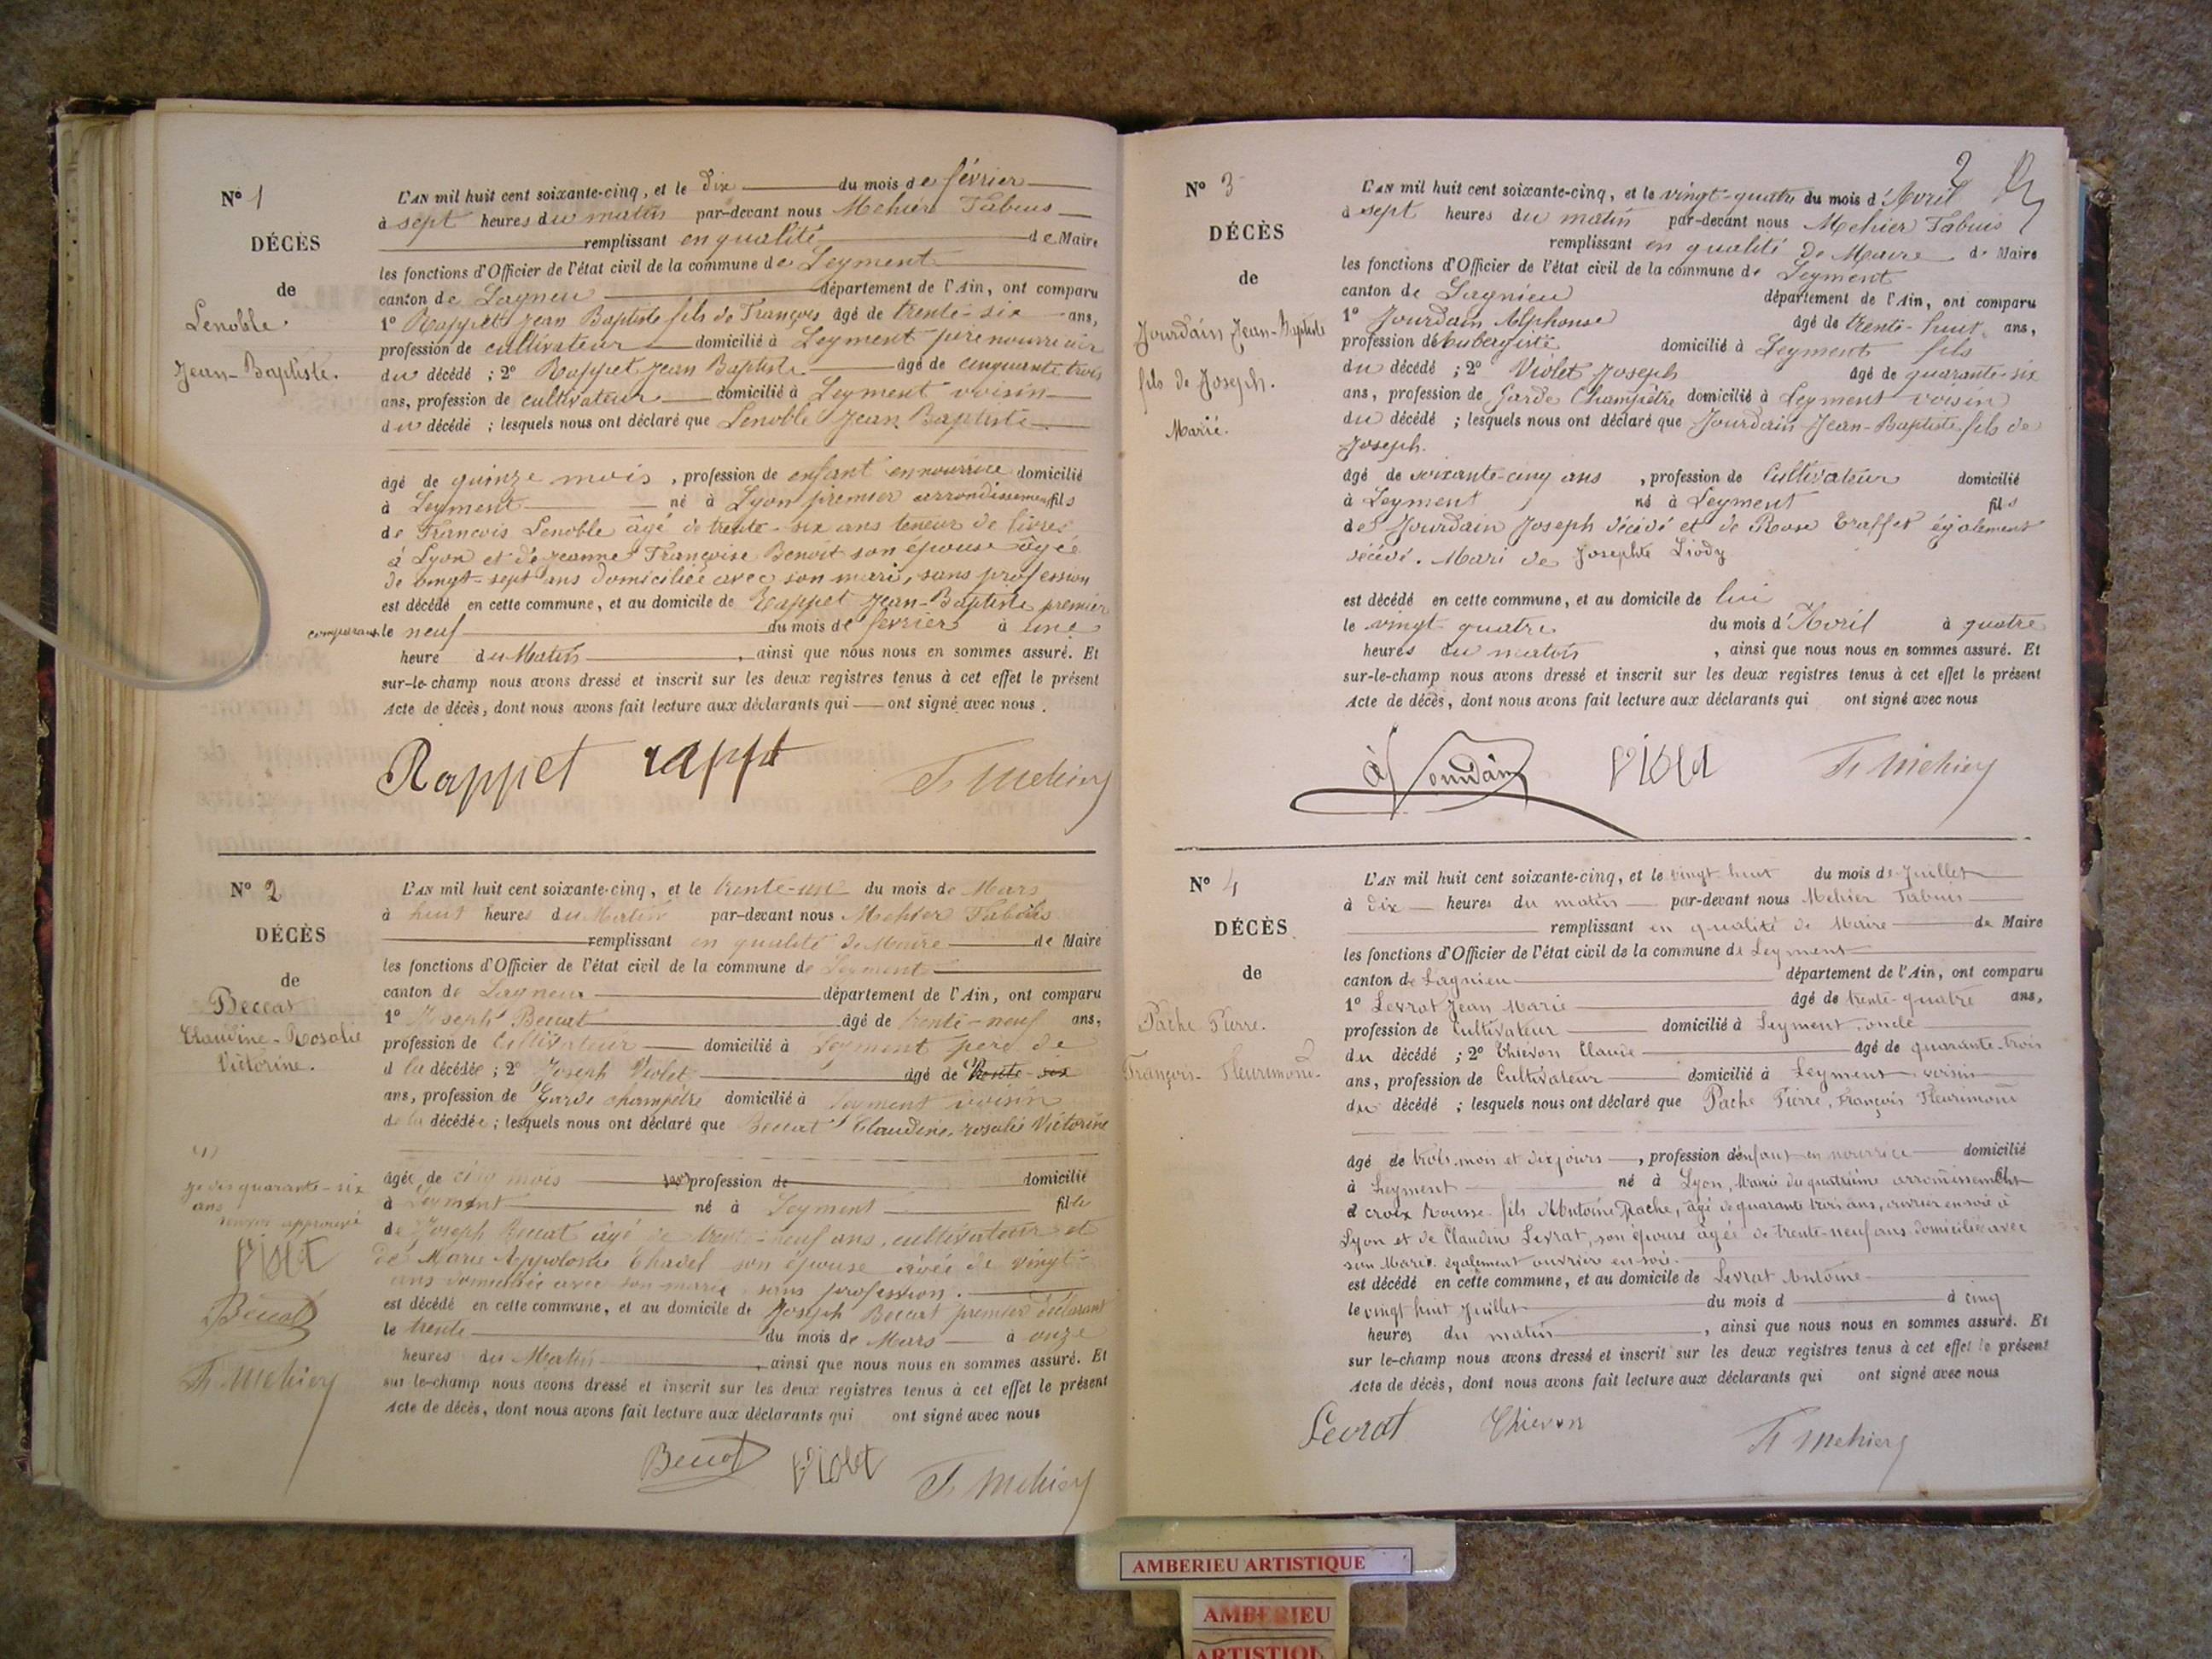 N° 1
DÉCÈS
de
Lenoble
Jean-Baptiste.
L'AN mil huit cent soixante-cinq, et le dix du mois de février
à sept heures du matin par-devant nous Mehier Fabius
remplissant en qualité de Maire
les fonctions d'Officier de l'état civil de la commune de Leyment
canton de Lagneu département de l'Ain, ont comparu
1° Rappet Jean Baptiste fils de François âgé de trente-six ans,
profession de cultivateur domicilié à Leyment père nourricier
du décédé ; 2° Rappet Jean Baptiste âgé de cinquante trois
ans, profession de cultivateur domicilié à Leyment voisin
du décédé ; lesquels nous ont déclaré que Lenoble Jean Baptiste
âgé de quinze mois, profession de enfant en nourrice domicilié
à Leyment né à Lyon premier arrondissement fils
de Francois Lenoble âgé de trente-six ans teneur de livres
à Lyon et de Jeanne Françoise Benoit son épouse âgée
de vingt-sept ans domiciliée avec son mari, sans profession
est décédé en cette commune, et au domicile de Rappet Jean-Baptiste premier
comparant le neuf du mois de février à une
heure du Matin, ainsi que nous nous en sommes assuré. Et
sur-le-champ nous avons dressé et inscrit sur les deux registres tenus à cet effet le présent
Acte de décès, dont nous avons fait lecture aux déclarants qui ont signé avec nous.
Rappet rappt F. Mehier
N° 2
DÉCÈS
de
Beccat
Claudine-Rosalie
Victorine.
L'AN mil huit cent soixante-cinq, et le trente-un du mois de Mars
à huit heures du Matin par-devant nous Mehier Fabius
remplissant en qualité de Maire de Maire
les fonctions d'Officier de l'état civil de la commune de Leyment
canton de Lagneu département de l'Ain, ont comparu
1° Joseph Beccat âgé de trente-neuf ans,
profession de Cultivateur domicilié à Leyment père de
d la décédée ; 2° Joseph Violet âgé de trente-six
ans, profession de Garde champêtre domicilié à Leyment voisin
de la décédée ; lesquels nous ont déclaré que Beccat Claudine, rosalie Victorine
âgée de cinq mois profession de domicilié
à Leyment né à Leyment fille
de Joseph Beccat âgé de trente-neuf ans, cultivateur et
de Marie Appolonie Chavel son épouse âgée de vingt-
ans domiciliée avec son marie, sans profession.
est décédé en cette commune, et au domicile de Joseph Beccat premier déclarant
le trente du mois de Mars à onze
heures du Matin, ainsi que nous nous en sommes assuré. Et
sur le-champ nous avons dressé et inscrit sur les deux registres tenus à cet effet le présent
Acte de décès, dont nous avons fait lecture aux déclarants qui ont signé avec nous
(1)
quarante-six
ans
renvoi approuvé
Violet
Beccat
F. Mehier
Beccat Violet F. Mehier
2
N° 3
DÉCÈS
de
Jourdain Jean-Baptiste
fils de Joseph.
Marié.
L'AN mil huit cent soixante-cinq, et le vingt-quatre du mois d'Avril
à sept heures du matin par-devant nous Mehier Fabius
remplissant en qualité de Maire de Maire
les fonctions d'Officier de l'état civil de la commune de Leyment
canton de Lagnieu département de l'Ain, ont comparu
1° Jourdain Alphonse âgé de trente-huit ans,
profession d'Aubergiste domicilié à Leyment fils
du décédé ; 2° Violet Joseph âgé de quarante-six
ans, profession de Garde Champêtre domicilié à Leyment voisin
du décédé ; lesquels nous ont déclaré que Jourdain Jean-Baptiste fils de
Joseph.
âgé de soixante-cinq ans, profession de Cultivateur domicilié
à Leyment né à Leyment fils
de Jourdain Joseph décédé et de Rose Traffet également
décédé. Mari de Josephte Liody
est décédé en cette commune, et au domicile de lui
le vingt quatre du mois d'Avril à quatre
heures du matin, ainsi que nous nous en sommes assuré. Et
sur-le-champ nous avons dressé et inscrit sur les deux registres tenus à cet effet le présent
Acte de décès, dont nous avons fait lecture aux déclarants qui ont signé avec nous
à Jourdain Violet F. Mehier
N° 4
DÉCÈS
de
Pache Pierre.
François-Fleurimond.
L'AN mil huit cent soixante-cinq, et le vingt huit du mois de Juillet
à dix heures du matin par-devant nous Mehier Fabius
remplissant en qualité de Maire de Maire
les fonctions d'Officier de l'état civil de la commune de Leyment
canton de Lagnieu département de l'Ain, ont comparu
1° Levrat Jean Marie âgé de trente-quatre ans,
profession de Cultivateur domicilié à Leyment, oncle
du décédé ; 2° Thievon Claude âgé de quarante-trois
ans, profession de Cultivateur domicilié à Leyment voisin
du décédé ; lesquels nous ont déclaré que Pache Pierre, François Fleurimond
âgé de trois mois et dix jours, profession d'enfant en nourrice domicilié
à Leyment né à Lyon, Mairie du quatrième arrondissement
d croix Rousse fils d'Antoine Pache, âgé de quarante trois ans, ouvrier en soie à
Lyon et de Claudine Levrat, son épouse âgée de trente-neuf ans domiciliée avec
son Mari également ouvrière en soie.
est décédé en cette commune, et au domicile de Levrat Antoine
le vingt huit Juillet du mois d à cinq
heures du matin, ainsi que nous nous en sommes assuré. Et
sur le-champ nous avons dressé et inscrit sur les deux registres tenus à cet effet le présent
Acte de décès, dont nous avons fait lecture aux déclarants qui ont signé avec nous
Levrat Thievon F. Mehier
AMBERIEU ARTISTIQUE
AMBERIEU
ARTISTIQU